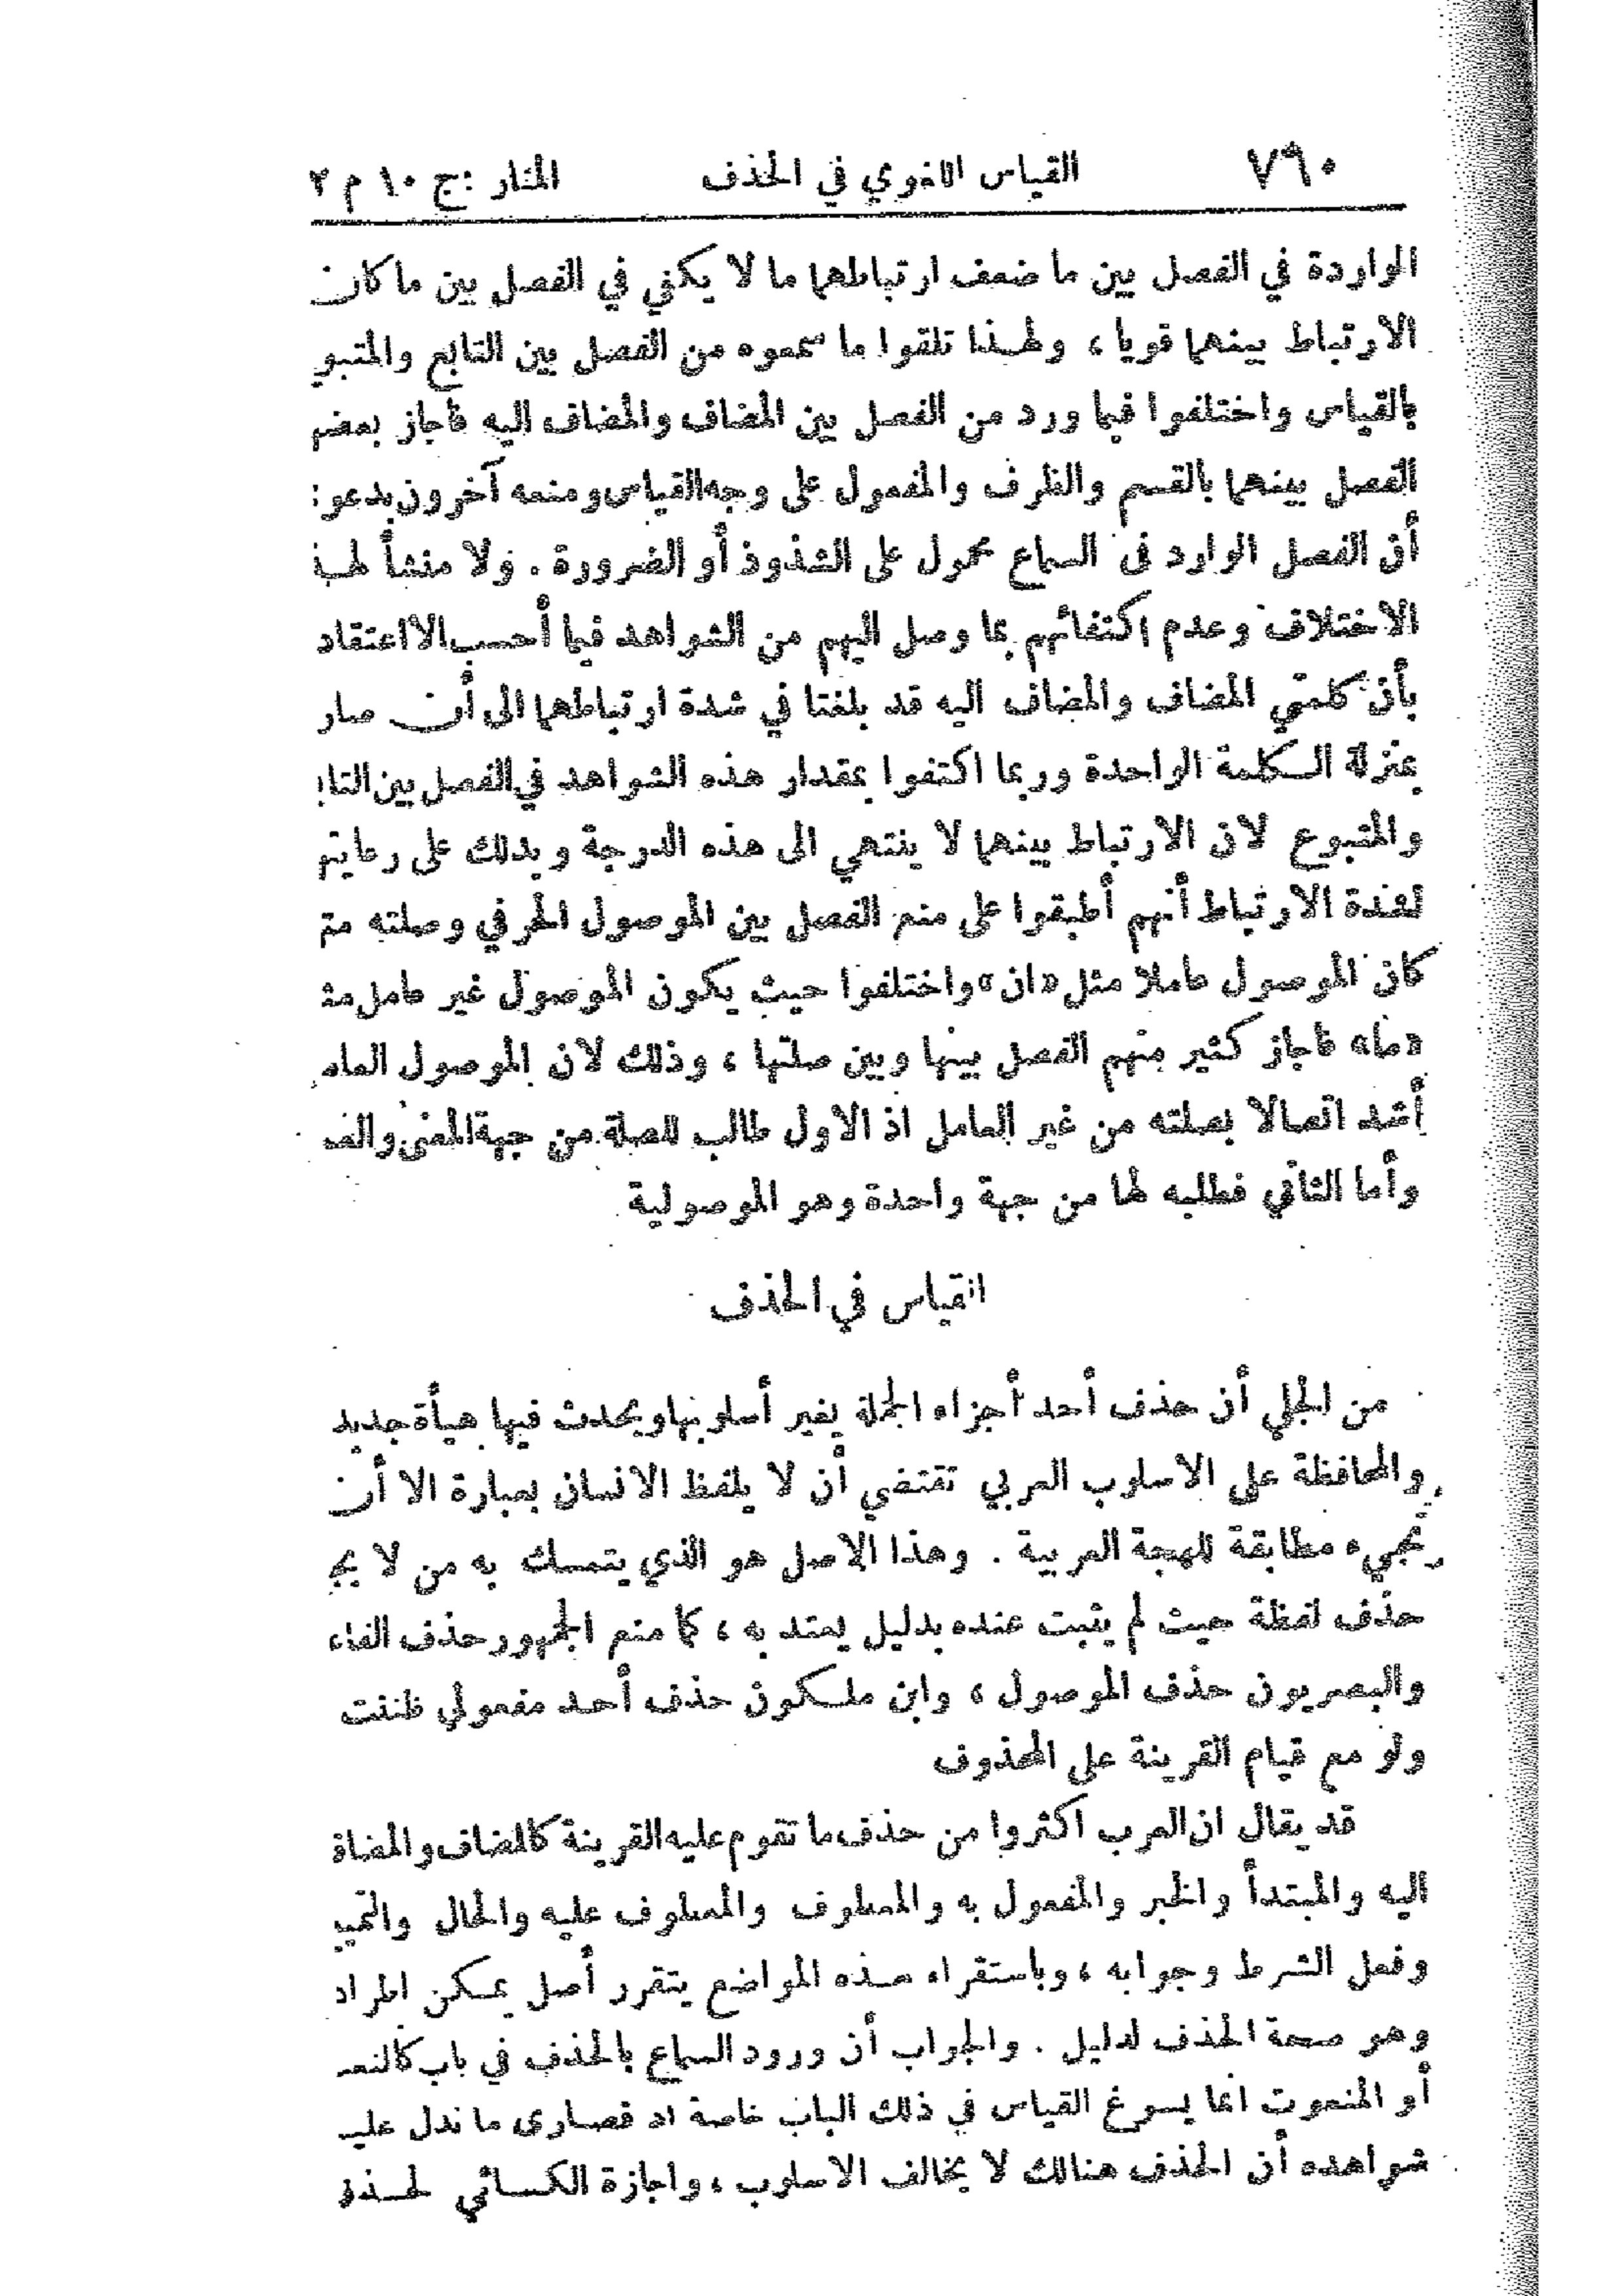 ٧٩٠ القياس اللغوي في الحذف المنار: ج ١٠ م ٢
الواردة في الفصل بين ما ضعف ارتباطهما ما لا يكفي في الفصل بين ما كان
الارتباط بينهما قويا، ولهذا تلقوا ما سمعوه من الفصل بين التابع والمتبو
بالقياس واختلفوا فيما ورد من الفصل بين المضاف والمضاف اليه فأجاز بعضهـ
الفصل بينهما بالقسم والظرف والمفعول على وجه القياس ومنعه آخرون بدعو
أن الفصل الوارد في السماع محمول على الشذوذ أو الضرورة. ولا منشأ لهـذ
الاختلاف وعدم اكتفائهم بما وصل اليهم من الشواهد فيما أحسب الا اعتقاد
بأن كلمتي المضاف والمضاف اليه قد بلغتا في شدة ارتباطهما الى أن صار
بمنزلة الكلمة الواحدة وربما اكتفوا بمقدار هذه الشواهد في الفصل بين التا
والمتبوع لان الارتباط بينهما لا ينتهي الى هذه الدرجة ويدلك على رعايتهـ
لشدة الارتباط أنهم أطبقوا على منع الفصل بين الموصول الحرفي وصلته متـ
كان الموصول عاملا مثل «ان» واختلفوا حيث يكون الموصول غير عامل مثـ
«ما» فأجاز كثير منهم الفصل بينها وبين صلتها، وذلك لان الموصول العامـ
أشد اتصالا بصلته من غير العامل اذ الاول طالب للصلة من جهة المعنى والعمـ
وأما الثاني فطلبه لها من جهة واحدة وهو الموصولية
القياس في الحذف
من الجلي أن حذف أحد أجزاء الجملة يغير أسلوبها ويحدث فيها هيأة جديد
والمحافظة على الاسلوب العربي تقتضي أن لا يلفظ الانسان بعبارة الا أن
تجيء مطابقة للهجة العربية. وهذا الاصل هو الذي يتمسك به من لا يجـ
حذف لفظة حيث لم يثبت عنده بدليل يعتد به، كما منع الجمهور حذف الفاء
والبصريون حذف الموصول، وابن ملكون حذف أحد مفعولي ظننت
ولو مع قيام القرينة على المحذوف
قد يقال ان العرب اكثروا من حذف ما تقوم عليه القرينة كالمضاف والمضاف
اليه والمبتدأ والخبر والمفعول به والمعطوف والمعطوف عليه والحال والتميـ
وفعل الشرط وجوابه، وباستقراء هذه المواضع يتقرر أصل يمكن اطراد
وهو صحة الحذف لدليل. والجواب أن ورود السماع بالحذف في باب كالنعـ
أو المنعوت انما يسوغ القياس في ذلك الباب خاصة اذ قصارى ما تدل عليـ
شواهده أن الحذف هنالك لا يخالف الاسلوب، واجازة الكسائي لحـذف